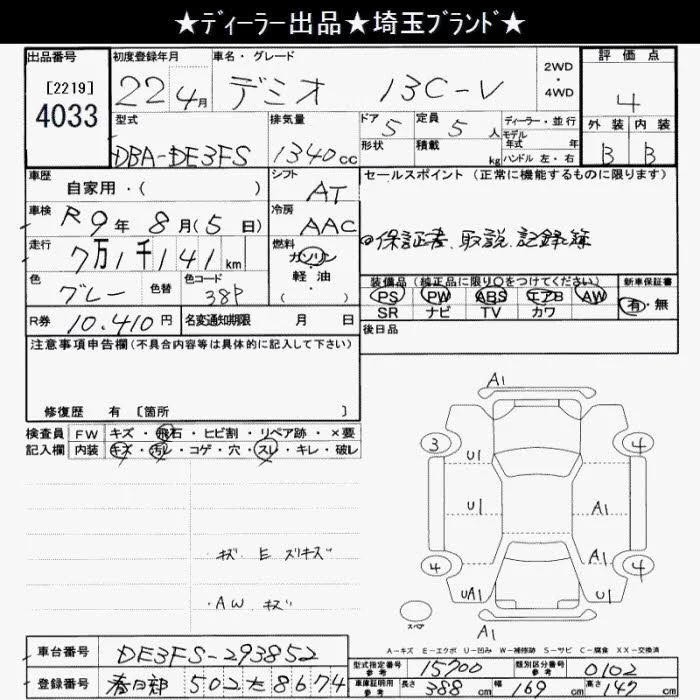 ★ディーラー出品★埼玉ブランド★
出品番号 初度登録年月 車名・グレード 2WD ・ 4WD 評価点
[2219] 4033 22年4月 デミオ 13C-V 4
型式 排気量 ドア 5 定員 5人 ディーラー・並行 外装 内装
DBA-DE3FS 1340cc 形状 積載 kg モデル年式 年 ハンドル 左・右 B B
車歴 シフト セールスポイント(正常に機能するものに限ります)
自家用・( ) AT
車検 R9年8月(5日) 冷房 AAC
走行 7万1千141km 燃料 ガソリン・軽油・( ) 保証書、取説、記録簿
色 グレー 色替 色コード 38P 装備品(純正品に限り○をつけてください) 新車保証書
PS PW ABS エアB AW 有・無
SR ナビ TV カワ
R券 10,410円 名変通知期限 月 日 後日品
注意事項申告欄(不具合内容等は具体的に記入して下さい)
修復歴 有 [箇所 ]
検査員 FW キズ・飛石・ヒビ割・リペア跡・×要
記入欄 内装 キズ・汚レ・コゲ・穴・スレ・キレ・破レ
A1
3 4
U1
U1 A1
A1
4 4
UA1 U1
A1
スペア
キズ E スリキズ
AW キズ
A-キズ E-エクボ U-凹み W-補修跡 S-サビ C-腐食 XX-交換済
車台番号 DE3FS-293852
型式指定番号 参考 15700 類別区分番号 参考 0102
登録番号 春日部 502 た 8674
車庫証明用 参考 長さ 388cm 幅 169cm 高さ 147cm